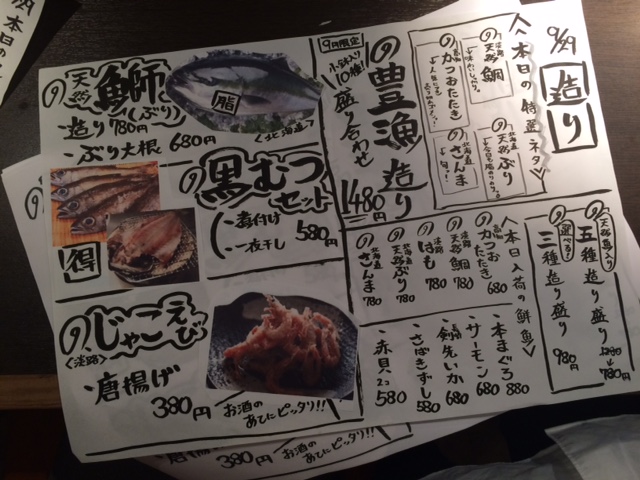 9/29
造り
〈本日の特選ネタ〉
淡路
天然鯛
北海道
天然ぶり
高知
かつおたたき
北海道
さんま
9月限定
小鉢入り
10種!
豊漁造り
盛り合わせ
1480円
天然魚入り
五種造り盛り
780円
選べる!
三種造り盛り
980円
〈本日入荷の鮮魚〉
高知
かつおたたき 680
淡路
天然鯛 780
淡路
はも 780
北海道
天然ぶり 780
北海道
さんま 780
・本まぐろ 880
・サーモン 680
・剣先いか 680
・さばきずし 580
・赤貝2コ 580
の天然鰤(ぶり)
脂
・造り 780円
・ぶり大根 680円
〈北海道〉
の黒むつセット
・煮付け
・一夜干し
580円
得
のじゃこえび
〈淡路〉
・唐揚げ
380円
お酒の
あてにピッタリ!!
380円
お酒の
あてにピッタリ!!
本日の